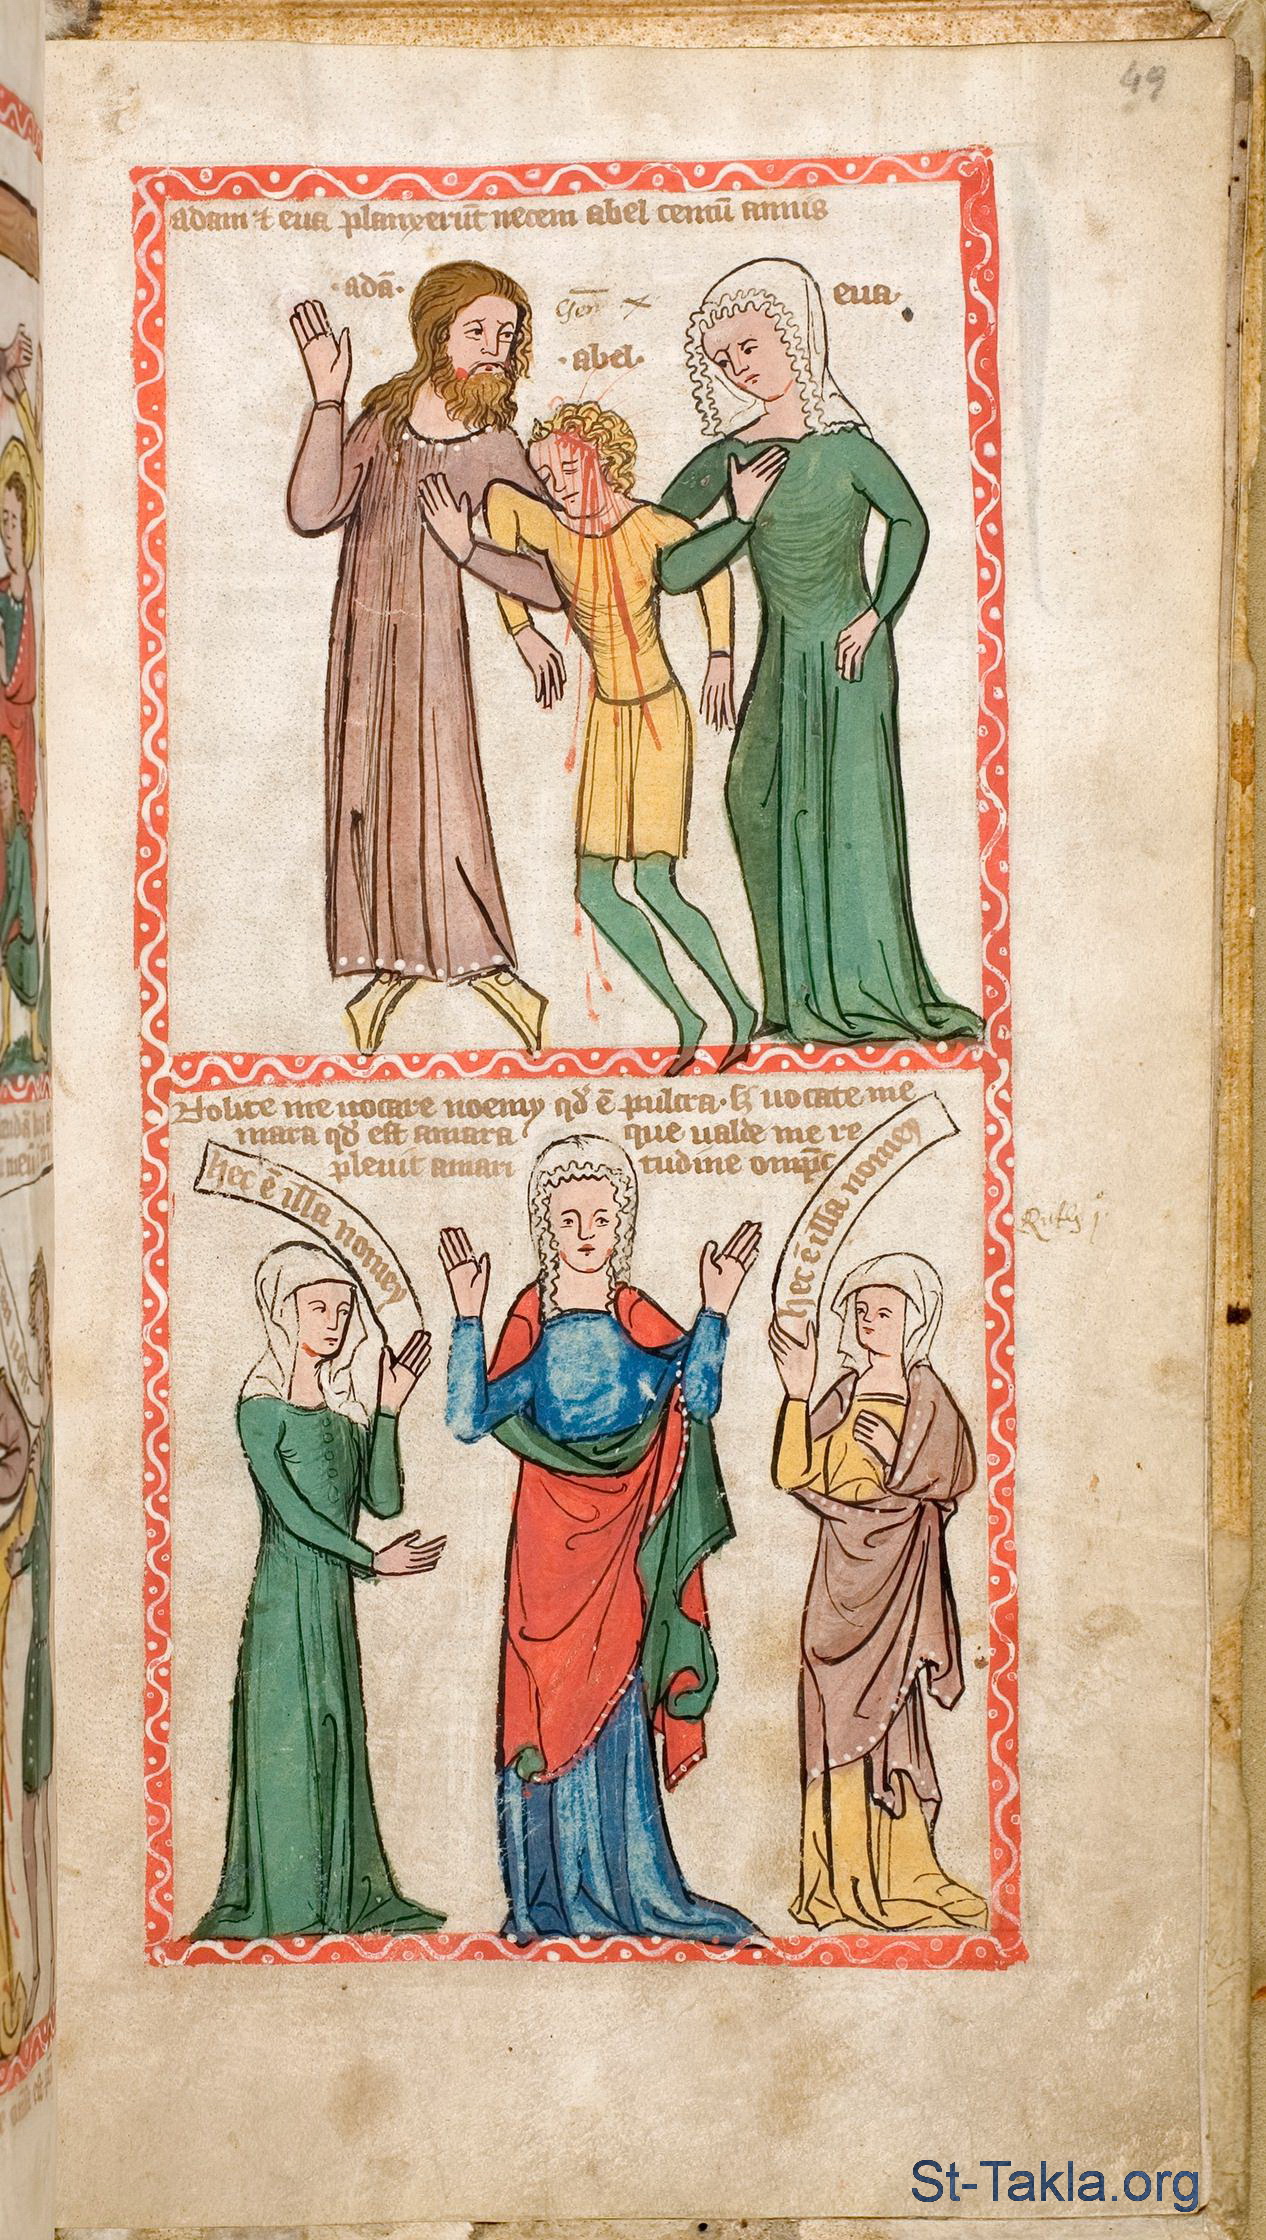 49
adam ⁊ eua planxerūt necem abel centū annis
·adā·
Gen
eua·
·abel·
Nolite me uocare noemy qd' ē pulcra· h; uocate me
mara qd' est amara que ualde me re
pleuit amari tudine omp̄c
hec ē illa nomey
hec ē illa nomey
Ruth j°
St-Takla.org